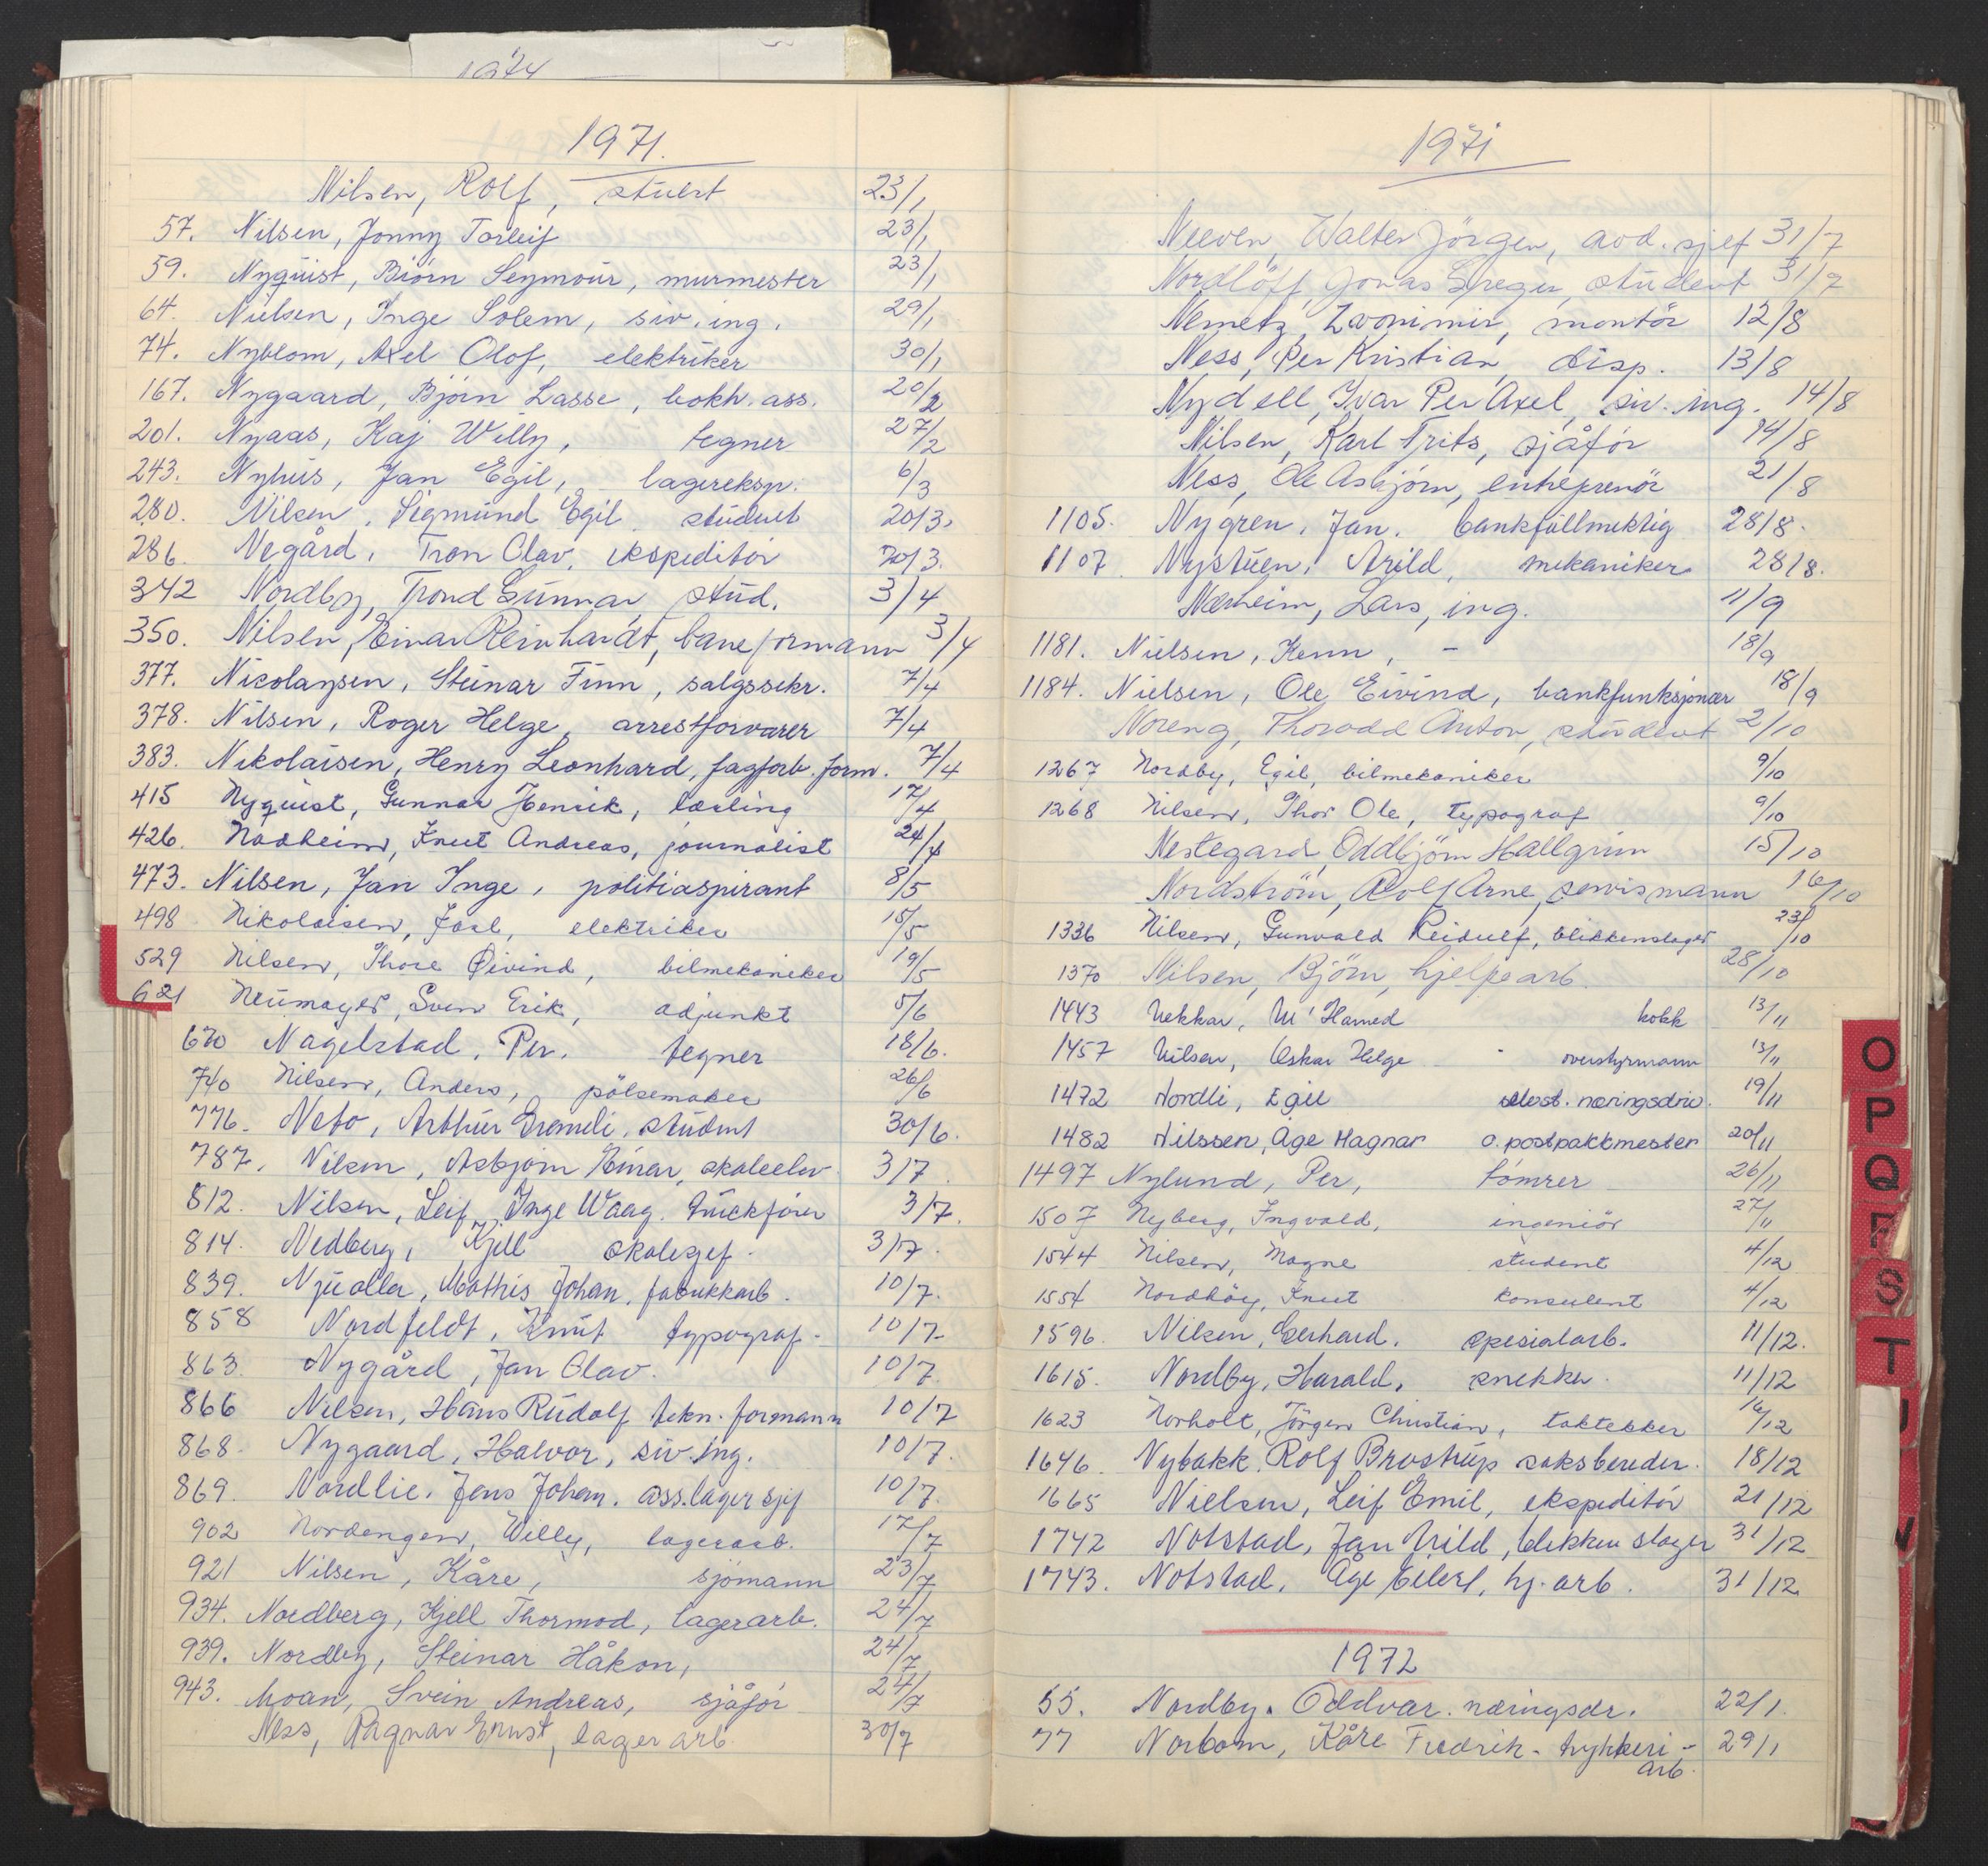 1974
1971.
Nilsen, Rolf, stuert 23/1
57. Nilsen, Jonny Torleif 23/1
59. Nyquist, Bjørn Seymour, murmester 23/1
64. Nielsen, Inge Solem, siv.ing. 29/1
74. Nyblom, Axel Olof, elektriker 30/1
167. Nygaard, Bjørn Lasse, bokh.ass. 20/2
201. Nyaas, Kaj Willy, tegner 27/2
243. Nyhus, Jan Egil, lagereksp. 6/3
280. Nilsen, Sigmund Egil, student 20/3.
286. Negård, Tron Olav, ekspeditör 20/3.
342 Nordby, Trond Gunnar, stud. 3/4
350. Nilsen, Einar Reinhardt, baneformann 3/4
377. Nicolaysen, Steinar Finn, salgssekr. 7/4
378. Nilsen, Roger Helge, arrestforvarer 7/4
383. Nikolaisen, Henry Leonhard, fagforb.form. 7/4
415 Nyquist, Gunnar Henrik, lærling 17/4
426. Nadheim, Knut Andreas, journalist 24/4
473. Nilsen, Jan Inge, politiaspirant 8/5
498 Nikolaisen, Joal, elektriker 15/5
529 Nilsen, Thore Øivind, bilmekaniker 19/5
621 Neumayer, Sven Erik, adjunkt 5/6
670 Nagelstad, Per, tegner 18/6.
740 Nilsen, Anders, pölsemaker 26/6
776. Neto, Arthur Gremeli, student 30/6.
787. Nilsen, Asbjørn Einar, skoleelev. 3/7.
812. Nilsen, Leif Inge Waag. truckförer 3/7.
814. Nedberg, Kjell skolesjef. 3/7.
839. Njualla, Mathis Johan, fabrikkarb. 10/7.
858 Nordfeldt, Knut typograf- 10/7-
863. Nygård, Jan Olav. 10/7.
866 Nilsen, Hans Rudolf tekn. formann 10/7
868. Nygaard, Halvor, siv.ing. 10/7.
869. Nordlie. Jens Johan. ass.lagersjef 10/7.
902 Nordengen, Willy, lagerarb. 17/7
921 Nilsen, Kåre, sjömann 23/7
934. Nordberg, Kjell Thormod, lagerarb. 24/7
939. Nordby, Steinar Håkon, 24/7
943. Moan, Svein Andreas, sjåför 24/7
Ness, Ragnar Ernst, lagerarb. 30/7
1971
Neeven, Walter Jörgen, avd.sjef 31/7
Nordlöff, Jonas Greger, student 31/7
Nemetz, Zvonimir, montör 12/8
Ness, Per Kristian, disp. 13/8
Nydell, Ivar Per Axel, siv. ing. 14/8
Nilsen, Karl Frits, sjåför 14/8
Ness, Ole Asbjörn, entreprenör 21/8
1105. Nygren, Jan. bankfullmektig 28/8.
1107. Nystuen, Arild, mekaniker 28/8.
Nærheim, Lars, ing. 11/9
1181. Nielsen, Kenn, - 18/9
1184. Nielsen, Ole Eivind, bankfunksjonær 18/9
Noreng, Thorodd Anton, student 2/10
1267 Nordby, Egil, bilmekaniker 9/10
1268 Nilsen, Thor Ole, typograf 9/10
Nestegard, Oddbjörn Hallgrim 15/10
Nordström, Rolf Arne, servismann 16/10
1336 Nilsen, Gunvald Reidulf, blikkenslager 23/10
1370 Nilsen, Björn, hjelpearb. 28/10
1443 Nekkar, M'Hamed kokk 13/11
1457 Nilsen, Oskar Helge overstyrmann 13/11
1472 Nordli, Egil selvst. næringsdriv. 19/11
1482 Nilssen, Åge Magnar o. postpakkmester 20/11
1497 Nylund, Per, tömrer 26/11
1507 Nyberg, Ingvald, ingeniör 27/11
1544 Nilsen, Magne student 4/12
1554 Nordhöy, Knut konsulent 4/12
1596. Nilsen, Gerhard. spesialarb. 11/12.
1615. Nordby, Harald, snekker. 11/12
1623 Norholt, Jörgen Christian, taktekker 16/12
1646. Nybakk, Rolf Brostrup saksbeuder. 18/12
1665 Nielsen, Leif Emil, ekspeditör 21/12
1742 Notstad, Jan Arild, blikkenslager 31/12
1743. Notstad, Åge Eilert, hj.arb. 31/12
1972
55. Nordby, Oddvar. næringsdr. 22/1.
77 Norbom, Kåre Fredrik- trykkeri- 29/1
arb.
O
P
Q
R
S
T
U
V